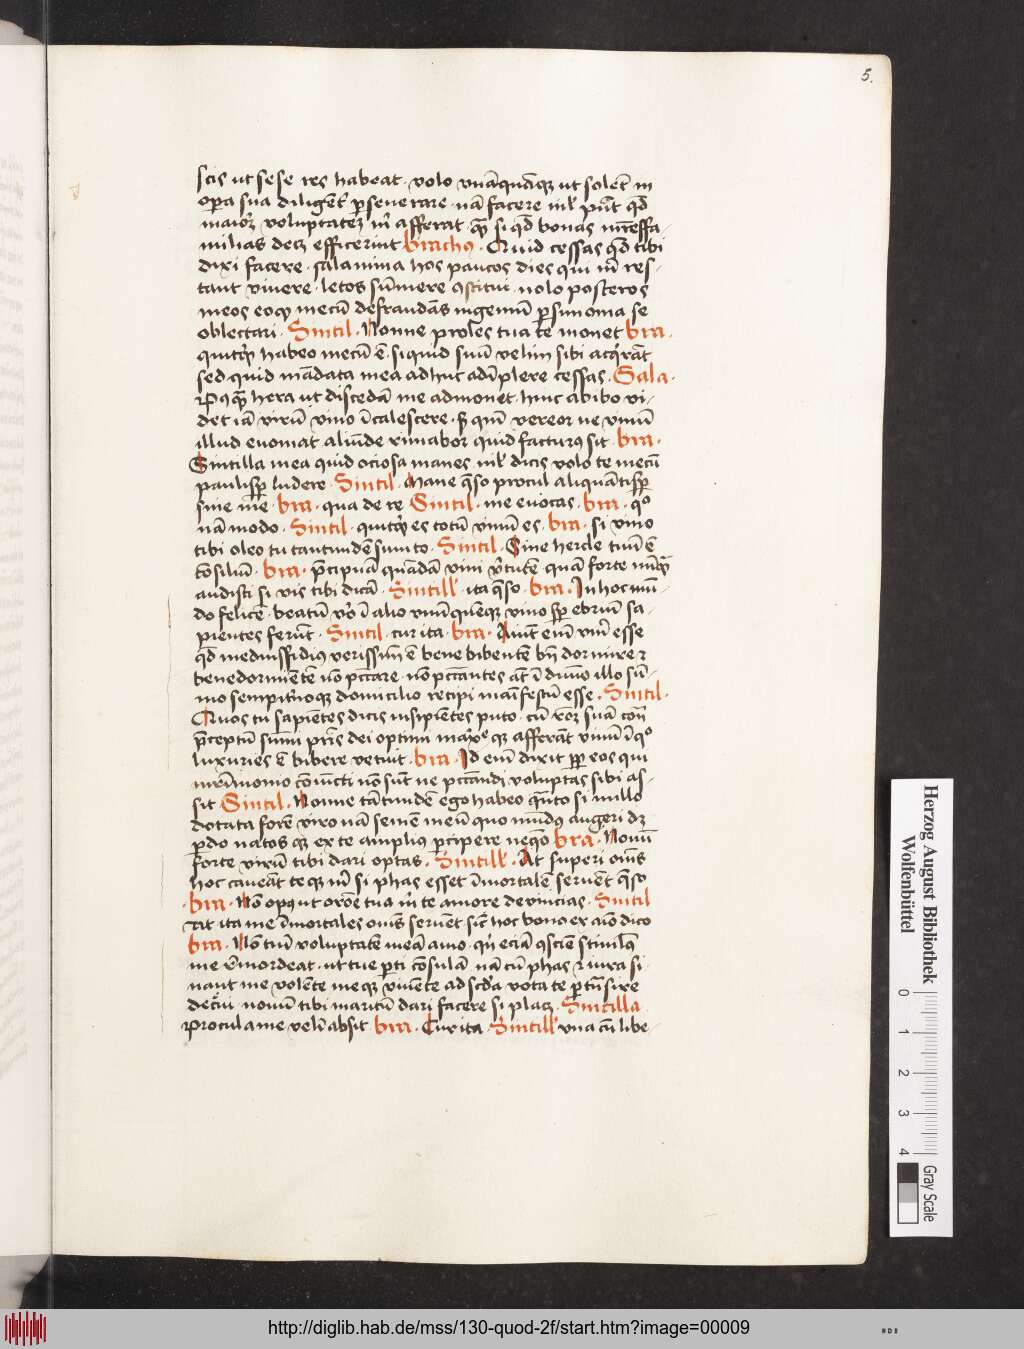 5.
scis ut sese res habeat. volo vnāquāqȝ ut solēt in
opa sua diligēt pseuerare. nā facere nil pñt qđ
maiorȝ voluptateȝ m̄ afferat. qȝ si qđ bonas mr̄effa-
milias decȝ efficerint brachus. Quid cessas qđ tibi
dixi facere. salamina hos paucos dies qui m̄ res-
tant viuere. letos sūmere ꝯstitui. nolo posteros
meos eoqȝ mecū defraudās ingeniū psimonia se
oblectari. Sintil. Nonne proles tua te monet bra.
quitqȝ habeo mecū ē. siquid suū velim sibi acqrāt
sed quid mādata mea adhuc adīplere cessas. Sala.
hera ut discedā me admonet. hinc abibo vi-
det iā virū vino īcalescere. qm̄ vereor ne vinū
illud euomat. aliūde rimabor quid facturꝰ sit. bra.
Sintilla mea quid ociosa manes. nil dicis volo te mecū
paulisp ludere. Sintil. Mane q̄so procul aliquātisp
sine me. bra. qua de re Sintil. me euocas. bra. qº
nā modo. Sintil. quitqȝ es totū vinū es. bra. si vino
tibi oleo tu tantundē sumito. Sintil. Sine hercle tuū ē
cōsiliū. bra. p̄cipuā quādā vini v̄tutem quā forte nūqȝ
audisti si vis tibi dicā. Sintill. ita q̄so. bra. In hoc mū-
do felicē. beatū vº ī alio vnūquēqȝ vino sp ebriū sa-
pientes ferūt. Sintil. cur ita. bra. Aiūt eni vm̄ esse
qđ mediusfidius verissim̄ ē bene bibentē bn̄ dormire ⁊
benedormiētē nō pccare. nō pccantes āt ī diuīo illo sū-
mo sempit̄noqȝ domicilio recipi manifestū esse. Sintil.
Quos tu sapiētes dicis insipiētes puto. cū suā
p̄ceptū sūmi pris dei optimi maxº qȝ afferāt vinū ī qº
luxuries ē bibere vetuit. bra. Id eni dixit pp eos qui
mr̄imonio cōiūcti nō sūt ne pccandi voluptas sibi as-
sit Sintil. Nonne tātundē ego habeo quāto si nullo
dotata forē viro nā semē meū quo mūdꝰ augeri dȝ
pdo natos qȝ ex te ampliꝰ pcipere nequeo bra. Nouū
forte virū tibi dari optas. Sintill. At superi oms
hoc caueāt teqȝ m̄ si phas esset īmortalē seruēt q̄so
. bra. Nō opꝰ ut orōne tua m̄ te amore deuincias. Sintil
ita me īmortales oms seruēt. sic hoc bono ex aio dico
bra. Nō tuū voluptatē meā amo. qn̄ eciā ꝯsciē stimulꝰ
me rmordeat. ut tue pti cōsulā nā cū phas ⁊ iura si-
nant me volente meqȝ viuente ad scđa vota te
decreui nouū tibi maritū dari facere si placȝ. Sintilla.
Procul a me velī absit bra. Cur ita Sintill vna cū libe-
Herzog August Bibliothek
Wolfenbüttel
0 1 2 3 4
Gray Scale
http://diglib.hab.de/mss/130-quod-2f/start.htm?image=00009